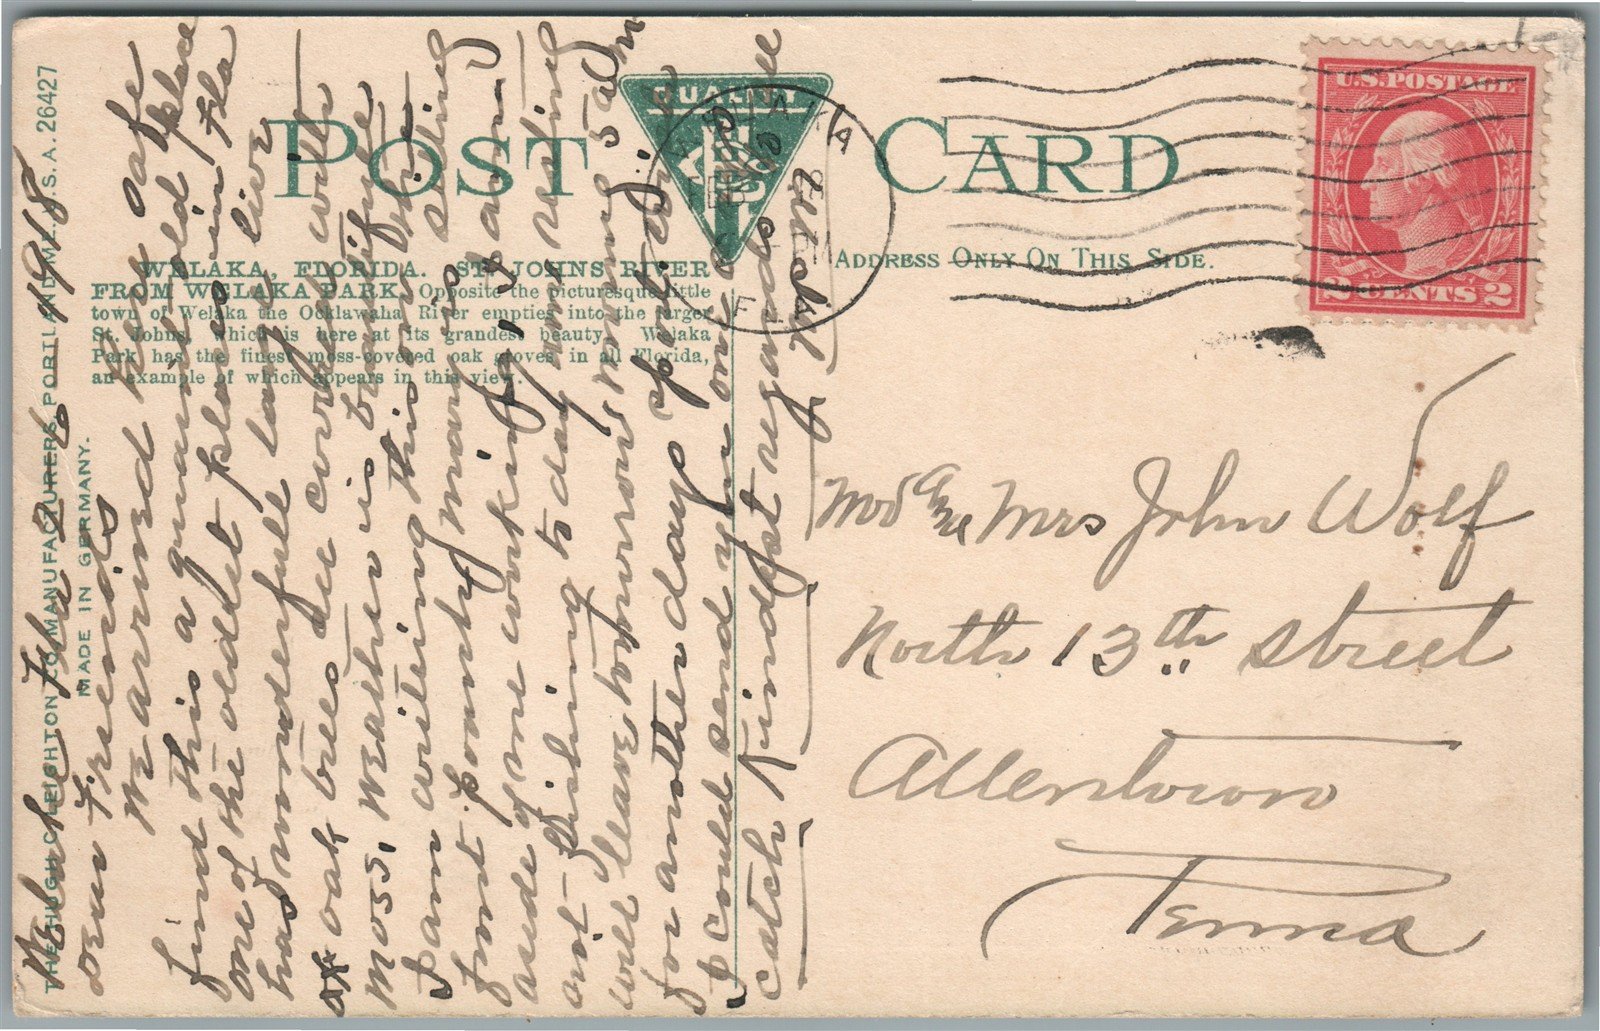 POST CARD
QUALITY
ADDRESS ONLY ON THIS SIDE.
U.S. POSTAGE
2 CENTS 2
WELAKA
FLA
WELAKA, FLORIDA. ST. JOHNS RIVER
FROM WELAKA PARK. Opposite the picturesque little
town of Welaka the Ocklawaha River empties into the larger
St. Johns, which is here at its grandest beauty. Welaka
Park has the finest moss-covered oak groves in all Florida,
an example of which appears in this view.
THE HUGH C. LEIGHTON CO., MANUFACTURERS, PORTLAND, ME., U.S.A. 26427
MADE IN GERMANY.
Welaka Fla 2-6 1918
Dear Friends
We arrived here safe
find this a quaint old place
one of the oldest places in Fla
has wonderfull large live
oak trees all covered with
moss, weather is beautifull
I am writeing this on the
front
aside of one working
out fishing to day am resting
will leave tomorrow morning 5 am
for another days sport, wish
I could send you one
catch Kindest regards
Mr and Mrs John Wolf
North 13th street
Allentown
Penna